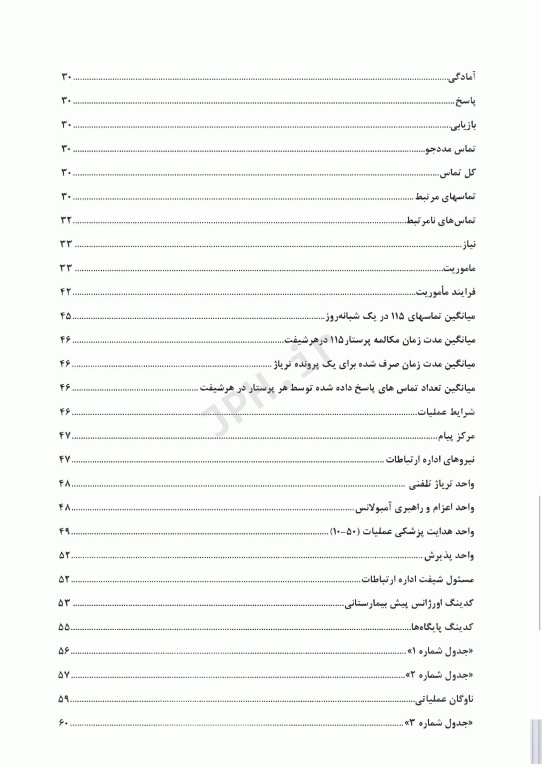 آمادگی ۳۰
پاسخ ۳۰
بازیابی ۳۰
تماس مددجو ۳۰
کل تماس ۳۰
تماسهای مرتبط ۳۰
تماس‌های نامرتبط ۳۲
نیاز ۳۳
ماموریت ۳۳
فرایند مأموریت ۴۲
میانگین تماسهای ۱۱۵ در یک شبانه‌روز ۴۵
میانگین مدت زمان مکالمه پرستار۱۱۵ درهرشیفت ۴۶
میانگین مدت زمان صرف شده برای یک پرونده تریاژ ۴۶
میانگین تعداد تماس های پاسخ داده شده توسط هر پرستار در هرشیفت ۴۶
شرایط عملیات ۴۶
مرکز پیام ۴۷
نیروهای اداره ارتباطات ۴۷
واحد تریاژ تلفنی ۴۸
واحد اعزام و راهبری آمبولانس ۴۸
واحد هدایت پزشکی عملیات (۵۰-۱۰) ۴۹
واحد پذیرش ۵۲
مسئول شیفت اداره ارتباطات ۵۲
کدینگ اورژانس پیش بیمارستانی ۵۳
کدینگ پایگاه‌ها ۵۵
«جدول شماره ۱» ۵۶
«جدول شماره ۲» ۵۷
ناوگان عملیاتی ۵۹
«جدول شماره ۳» ۶۰
JPH.ir